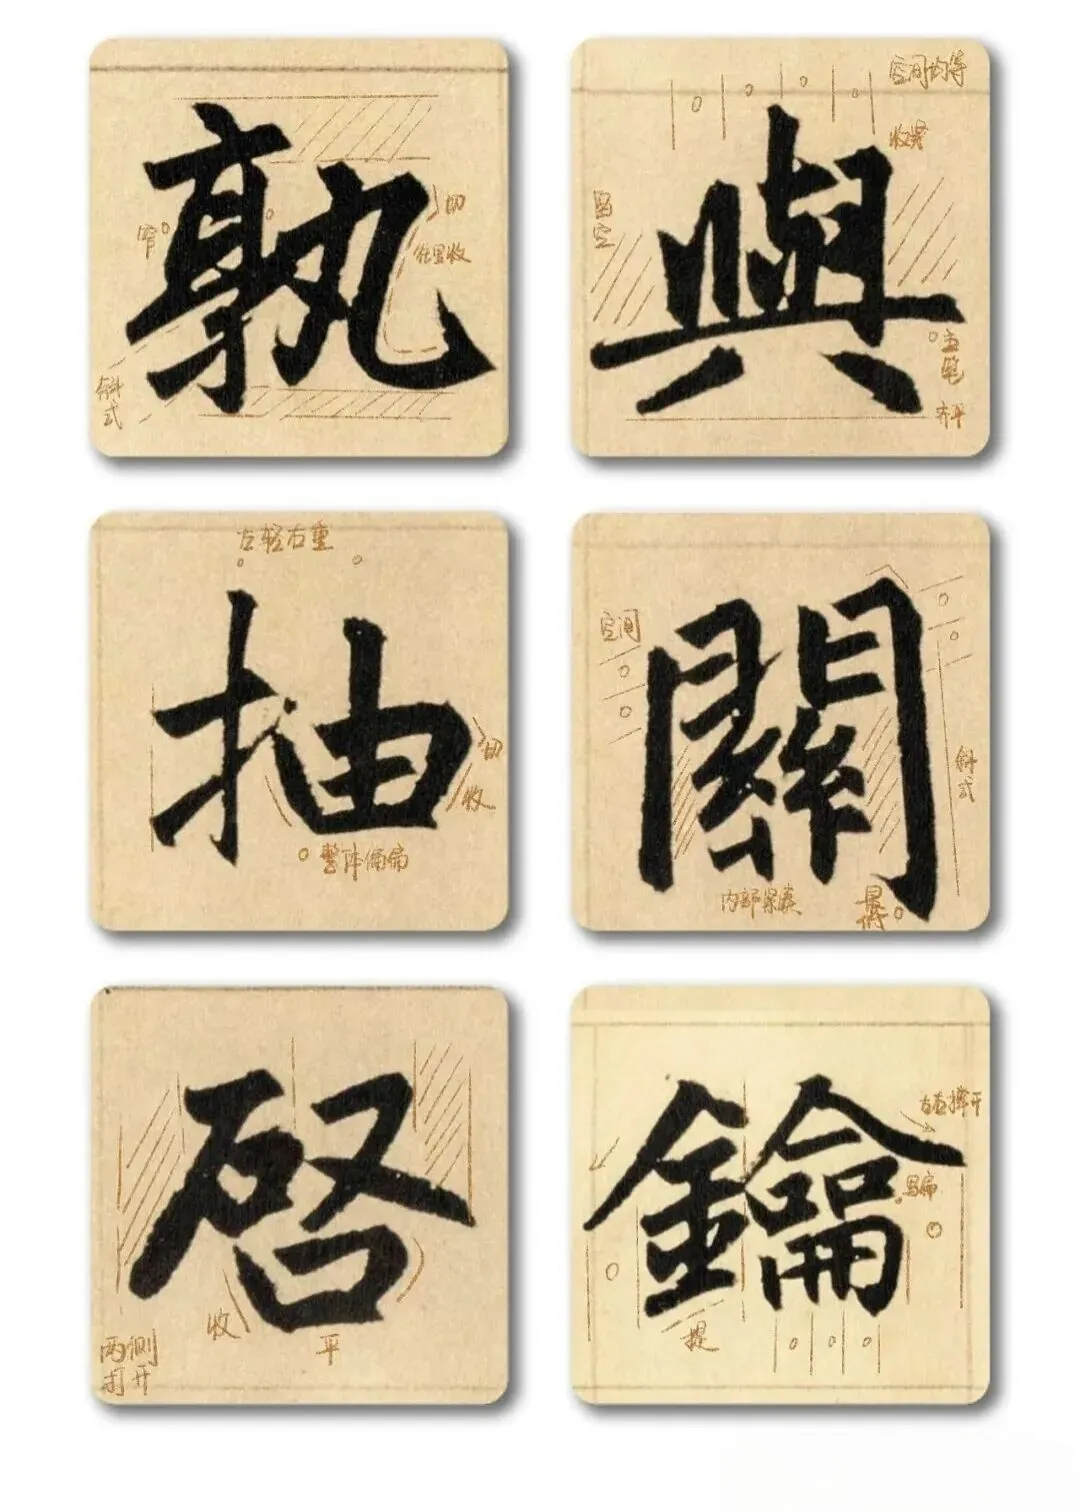 孰
窄
切
往里收
斜式
與
空间均等
收紧
留空
主笔
齐平
抽
左轻右重
切
收
整体偏扁
關
空间
斜式
内部紧凑
最低
啓
收
平
两侧
打开
鑰
左右撑开
写扁
提